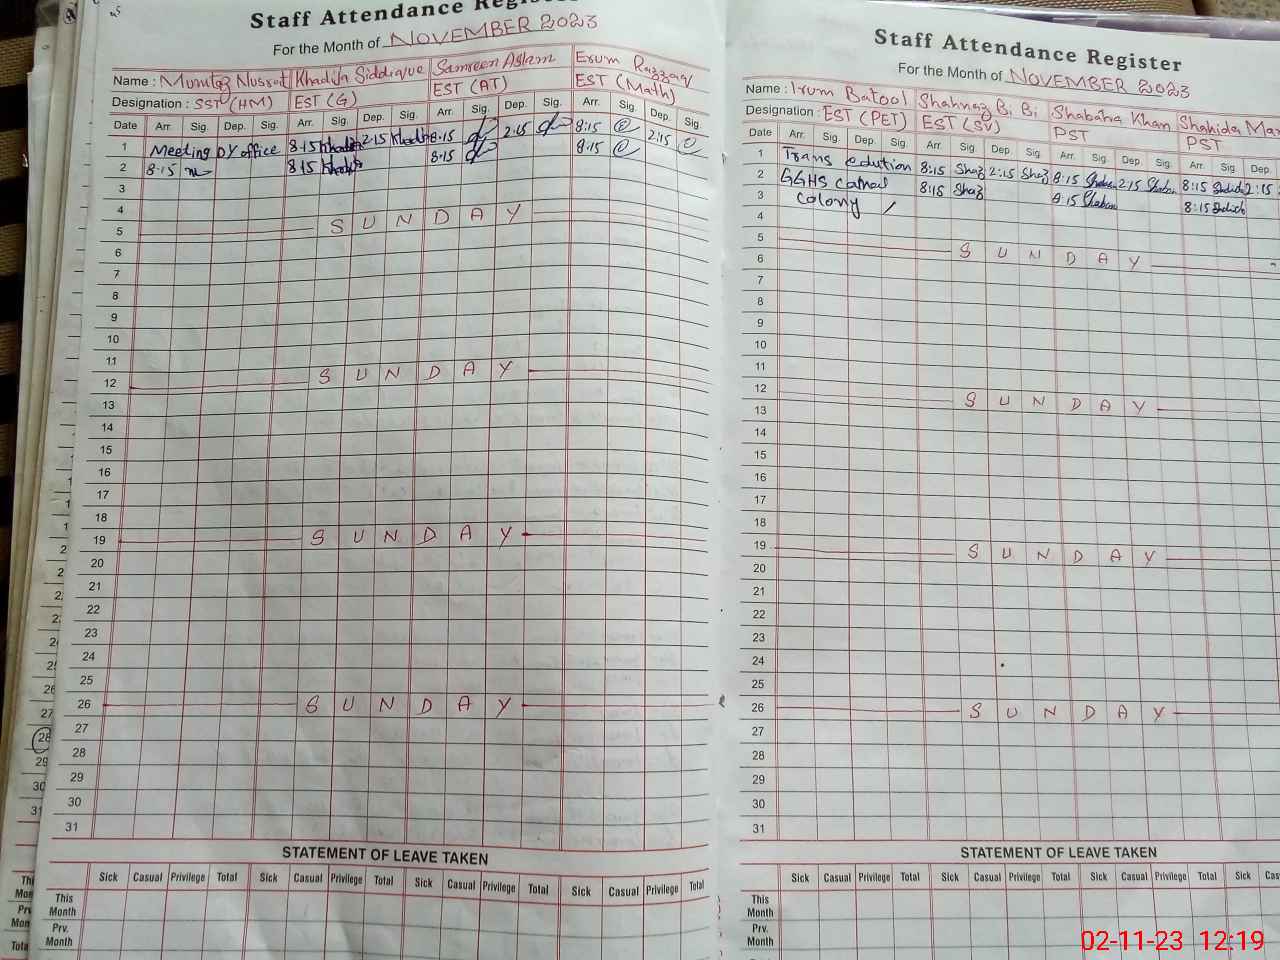 Staff Attendance Register
For the Month of NOVEMBER 2023
Name : Mumtaz Nusrat Khadija Siddique Samreen Aslam Erum Razzaq
Designation : SST (HM) EST (G) EST (AT) EST (Math)
Date Arr. Sig. Dep. Sig. Arr. Sig. Dep. Sig. Arr. Sig. Dep. Sig. Arr. Sig. Dep. Sig.
1 Meeting DY office 8:15 Khadija 2:15 Khadija 8:15 2:15 8:15 2:15
2 8:15 8:15 Khadija 8:15 8:15
3
4
5 SUNDAY
6
7
8
9
10
11
12 SUNDAY
13
14
15
16
17
18
19 SUNDAY
20
21
22
23
24
25
26 SUNDAY
27
28
29
30
31
STATEMENT OF LEAVE TAKEN
Sick Casual Privilege Total Sick Casual Privilege Total Sick Casual Privilege Total Sick Casual Privilege Total
This Month
Prv. Month
Staff Attendance Register
For the Month of NOVEMBER 2023
Name : Irum Batool Shahnaz Bi Bi Shabana Khan Shahida
Designation : EST (PET) EST (SV) PST PST
Date Arr. Sig. Dep. Sig. Arr. Sig. Dep. Sig. Arr. Sig. Dep. Sig. Arr. Sig. Dep.
1 Trans edution 8:15 Shaz 2:15 Shaz 8:15 Shaban 2:15 Shaban 8:15 2:15
2 GGHS 8:15 Shaz 8:15 Shaban 8:15
3 colony
4
5 SUNDAY
6
7
8
9
10
11
12 SUNDAY
13
14
15
16
17
18
19 SUNDAY
20
21
22
23
24
25
26 SUNDAY
27
28
29
30
31
STATEMENT OF LEAVE TAKEN
Sick Casual Privilege Total Sick Casual Privilege Total Sick Casual Privilege Total Sick
This Month
Prv. Month
02-11-23 12:19